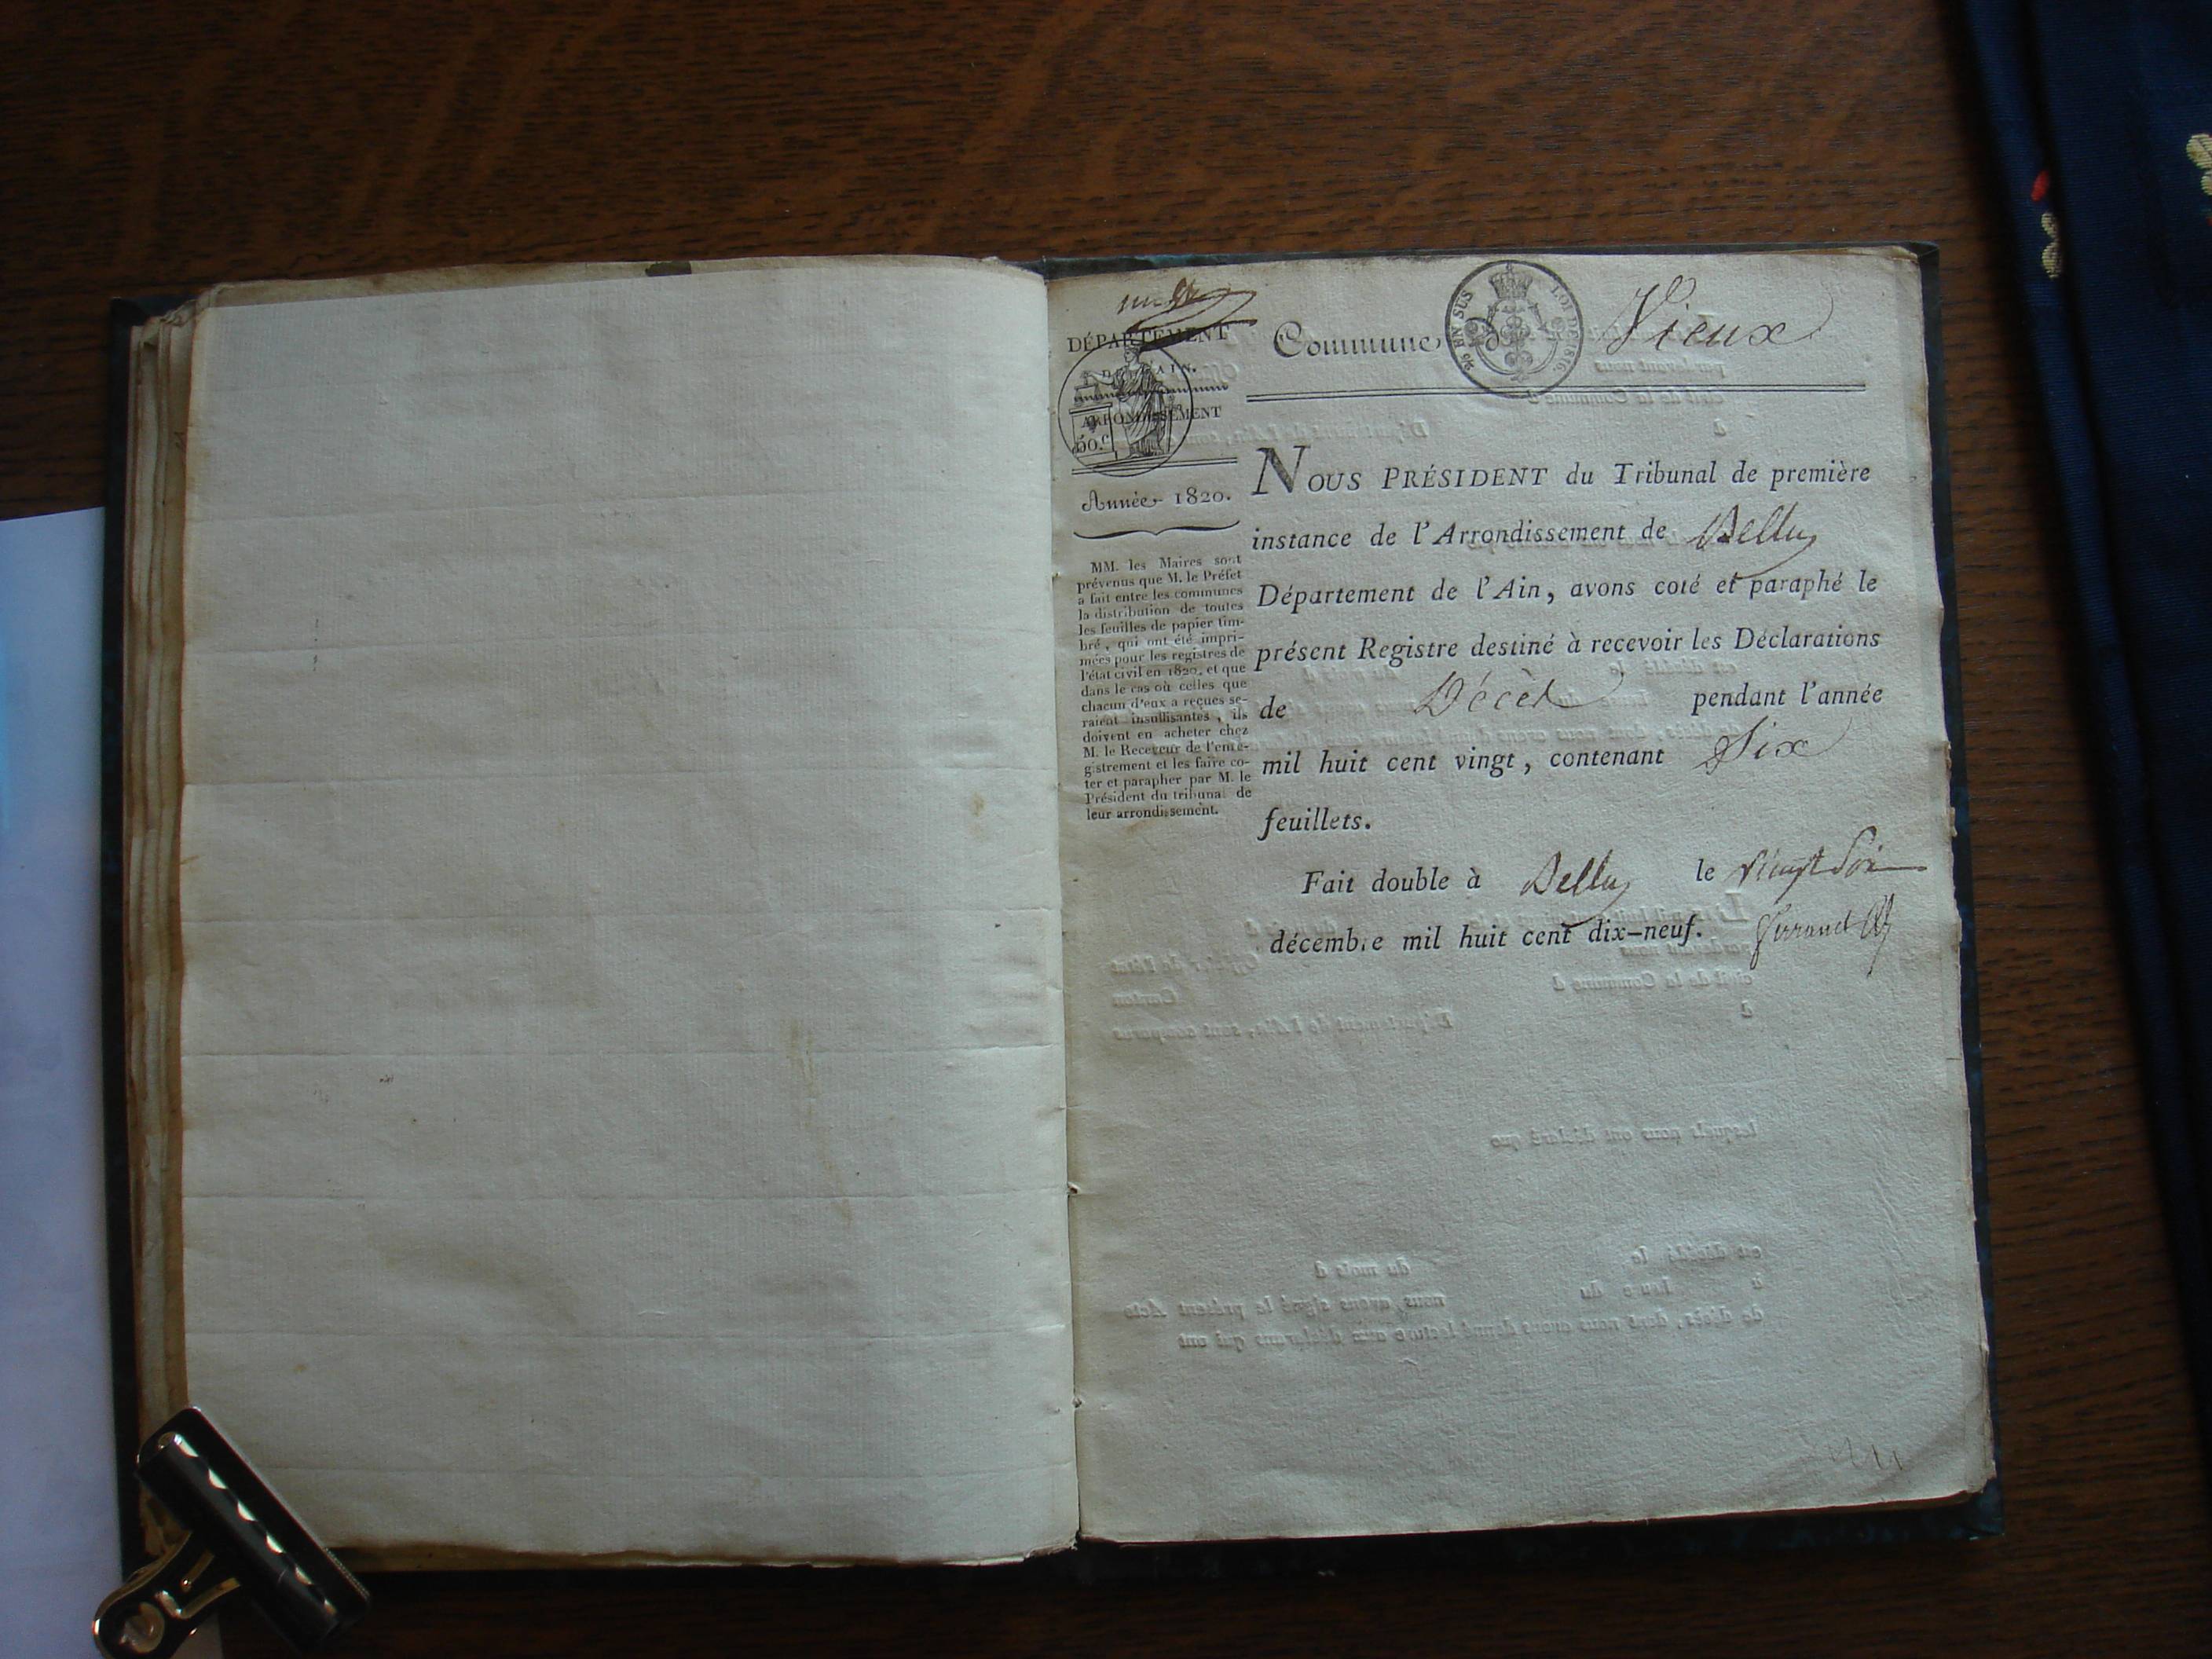 DÉPARTEMENT
DE L'AIN.
ARRONDISSEMENT
50.c
Année 1820.
MM. les Maires sont
prévenus que M. le Préfet
a fait entre les communes
la distribution de toutes
les feuilles de papier tim-
bré, qui ont été impri-
mées pour les registres de
l'état civil en 1820, et que
dans le cas où celles que
chacun d'eux a reçues se-
raient insuffisantes, ils
doivent en acheter chez
M. le Receveur de l'enre-
gistrement et les faire co-
ter et parapher par M. le
Président du tribunal de
leur arrondissement.
Commune d Vieux
EN SUS LOI DE 1816.
NOUS PRÉSIDENT du Tribunal de première
instance de l'Arrondissement de Belley
Département de l'Ain, avons coté et paraphé le
présent Registre destiné à recevoir les Déclarations
de Décès pendant l'année
mil huit cent vingt, contenant Six
feuillets.
Fait double à Belley le vingt
décembre mil huit cent dix-neuf.